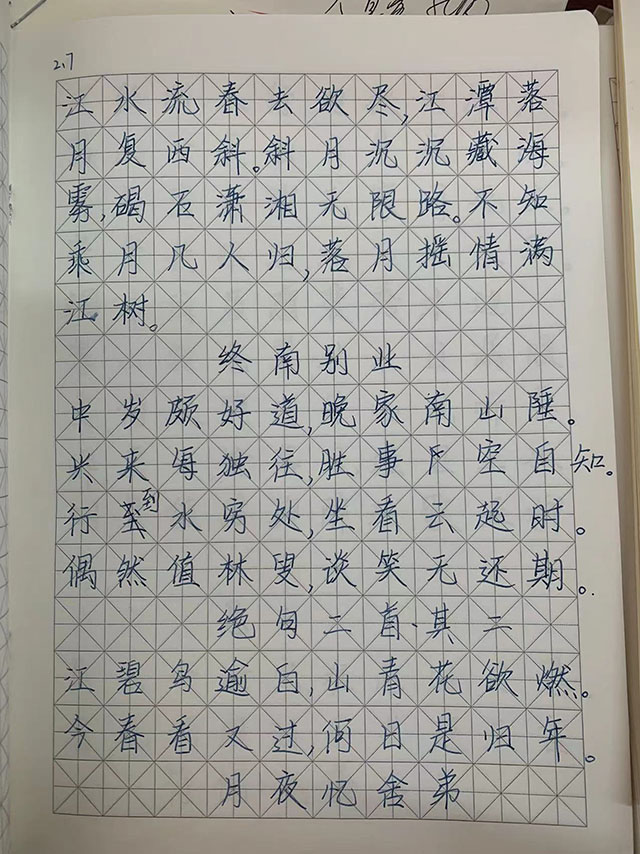 2.7
江水流春去欲尽,江潭落
月复西斜。斜月沉沉藏海
雾,碣石潇湘无限路。不知
乘月几人归,落月摇情满
江树。
终南别业
中岁颇好道,晚家南山陲。
兴来每独往,胜事空自知。
行到水穷处,坐看云起时。
偶然值林叟,谈笑无还期。
绝句二首·其二
江碧鸟逾白,山青花欲燃。
今春看又过,何日是归年。
月夜忆舍弟